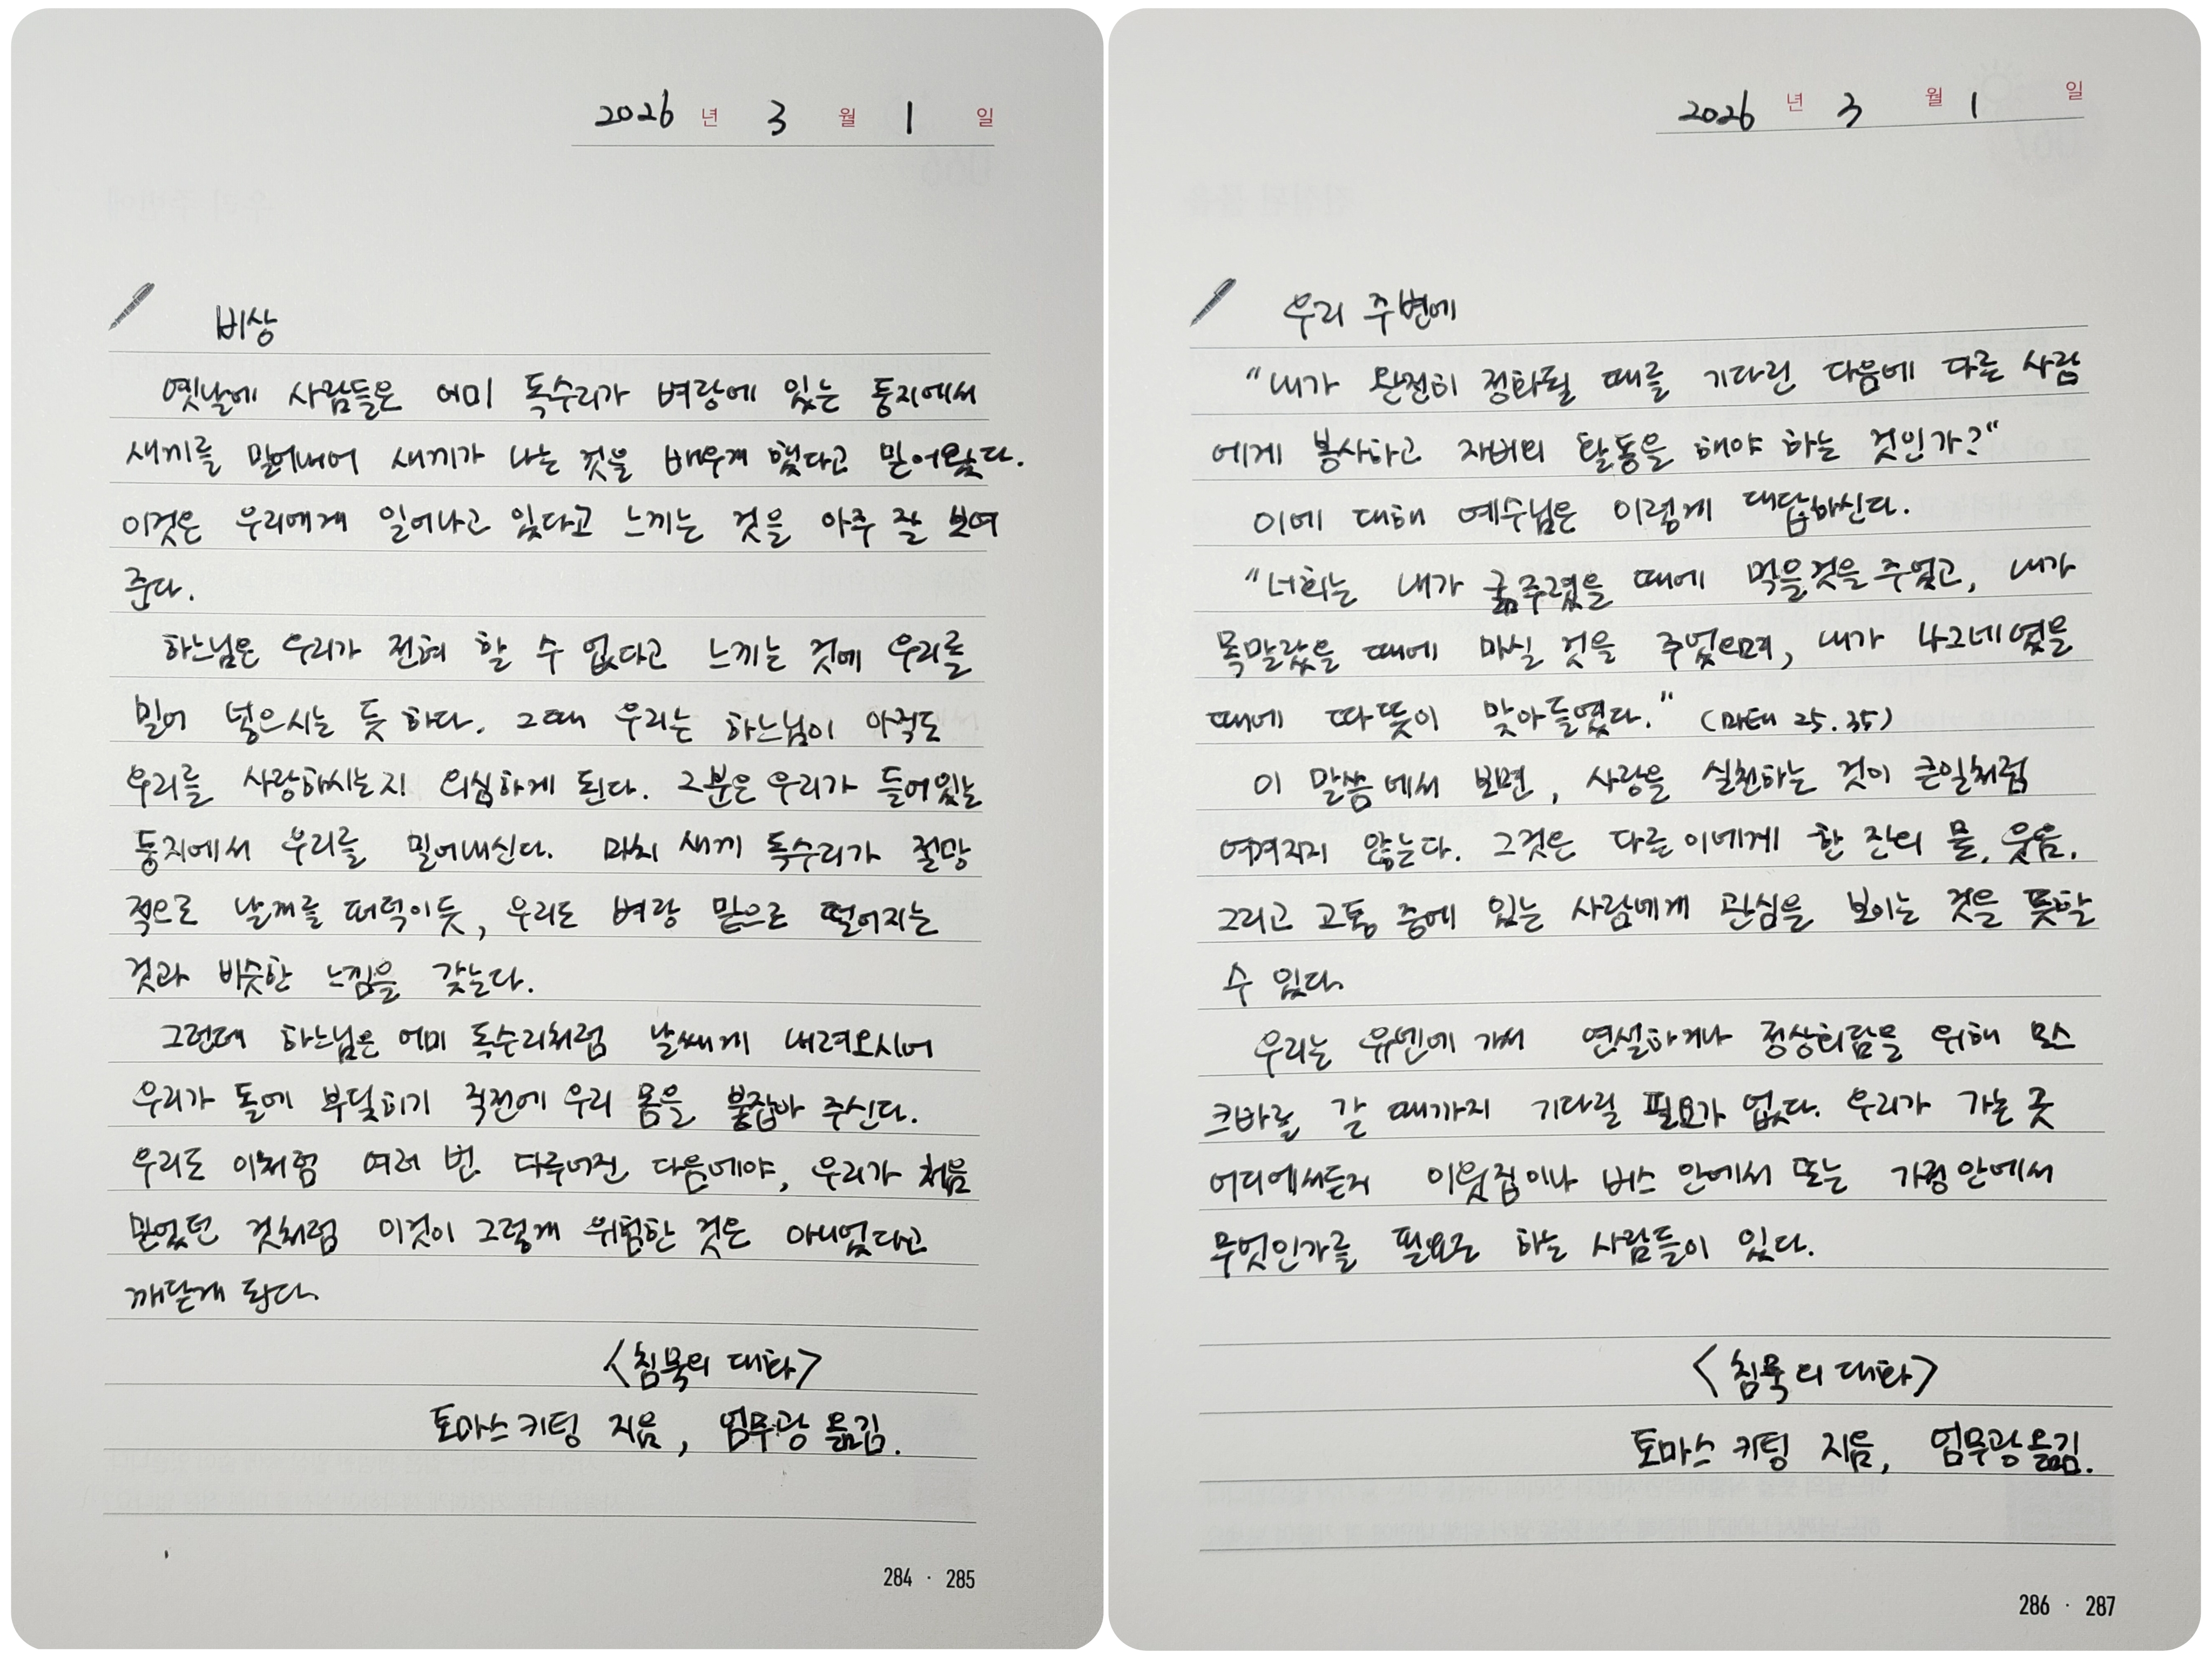 2026 년 3 월 1 일
비상
옛날에 사람들은 어미 독수리가 벼랑에 있는 둥지에서
새끼를 밀어내어 새끼가 나는 것을 배우게 했다고 믿어왔다.
이것은 우리에게 일어나고 있다고 느끼는 것을 아주 잘 보여
준다.
하느님은 우리가 전혀 할 수 없다고 느끼는 것에 우리를
밀어 넣으시는 듯 하다. 그때 우리는 하느님이 아직도
우리를 사랑하시는지 의심하게 된다. 그분은 우리가 들어있는
둥지에서 우리를 밀어내신다. 마치 새끼 독수리가 절망
적으로 날개를 퍼덕이듯, 우리도 벼랑 밑으로 떨어지는
것과 비슷한 느낌을 갖는다.
그런데 하느님은 어미 독수리처럼 날쌔게 내려오시어
우리가 돌에 부딪히기 직전에 우리 몸을 붙잡아 주신다.
우리도 이처럼 여러 번 다루어진 다음에야, 우리가 처음
믿었던 것처럼 이것이 그렇게 위험한 것은 아니었다고
깨닫게 된다.
<침묵의 대화>
토마스 키팅 지음, 엄무광 옮김.
284 · 285
2026 년 3 월 1 일
우리 주변에
"내가 완전히 정화될 때를 기다린 다음에 다른 사람
에게 봉사하고 자비의 활동을 해야 하는 것인가?"
이에 대해 예수님은 이렇게 대답하신다.
"너희는 내가 굶주렸을 때에 먹을것을 주었고, 내가
목말랐을 때에 마실 것을 주었으며, 내가 나그네였을
때에 따뜻이 맞아들였다." (마태 25.35)
이 말씀에서 보면, 사랑을 실천하는 것이 큰일처럼
여겨지지 않는다. 그것은 다른이에게 한 잔의 물, 웃음,
그리고 고통 중에 있는 사람에게 관심을 보이는 것을 뜻할
수 있다.
우리는 유엔에 가서 연설하거나 정상회담을 위해 모스
크바로 갈 때까지 기다릴 필요가 없다. 우리가 가는 곳
어디에서든지 이웃집이나 버스 안에서 또는 가정안에서
무엇인가를 필요로 하는 사람들이 있다.
<침묵의 대화>
토마스 키팅 지음, 엄무광 옮김.
286 · 287